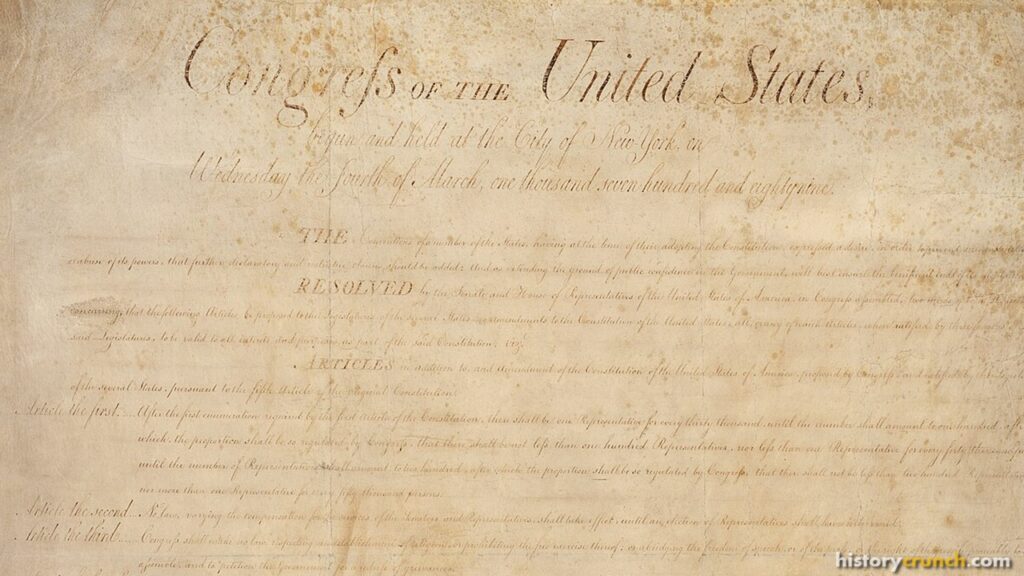 Congreſs OF THE United States,
begun and held at the City of New York, on
Wednesday the fourth of March, one thousand seven hundred and eighty nine.
THE Conventions of a number of the States, having at the time of their adopting the Constitution, expressed a desire, in order to prevent
or abuse of its powers, that further declaratory and restrictive clauses should be added: And as extending the ground of public confidence in the Government, will best ensure the beneficent ends of
RESOLVED by the Senate and House of Representatives of the United States of America, in Congreſs aſsembled, two thirds of
concurring, that the following Articles be proposed to the Legislatures of the several States, as amendments to the Constitution of the United States, all, or any of which Articles, when ratified by three fourths
said Legislatures, to be valid to all intents and purposes, as part of the said Constitution; viz.
ARTICLES in addition to, and amendment of the Constitution of the United States of America, proposed by Congreſs and ratified by the Legislatures
of the several States, pursuant to the fifth Article of the original Constitution.
Article the first... After the first enumeration required by the first Article of the Constitution, there shall be one Representative for every thirty thousand, until the number shall amount to one hundred, after
which, the proportion shall be so regulated by Congreſs, that there shall be not leſs than one hundred Representatives, nor leſs than one Representative for every forty thousand
until the number of Representatives shall amount to two hundred, after which the proportion shall be so regulated by Congreſs, that there shall not be leſs than two hundred Representatives
nor more than one Representative for every fifty thousand persons.
Article the second... No law, varying the compensation for the services of the Senators and Representatives, shall take effect, until an election of Representatives shall have intervened.
Article the third... Congreſs shall make no law respecting an establishment of religion, or prohibiting the free exercise thereof; or abridging the freedom of speech, or of the
aſsemble, and to petition the Government for a redreſs of grievances.
historycrunch.com